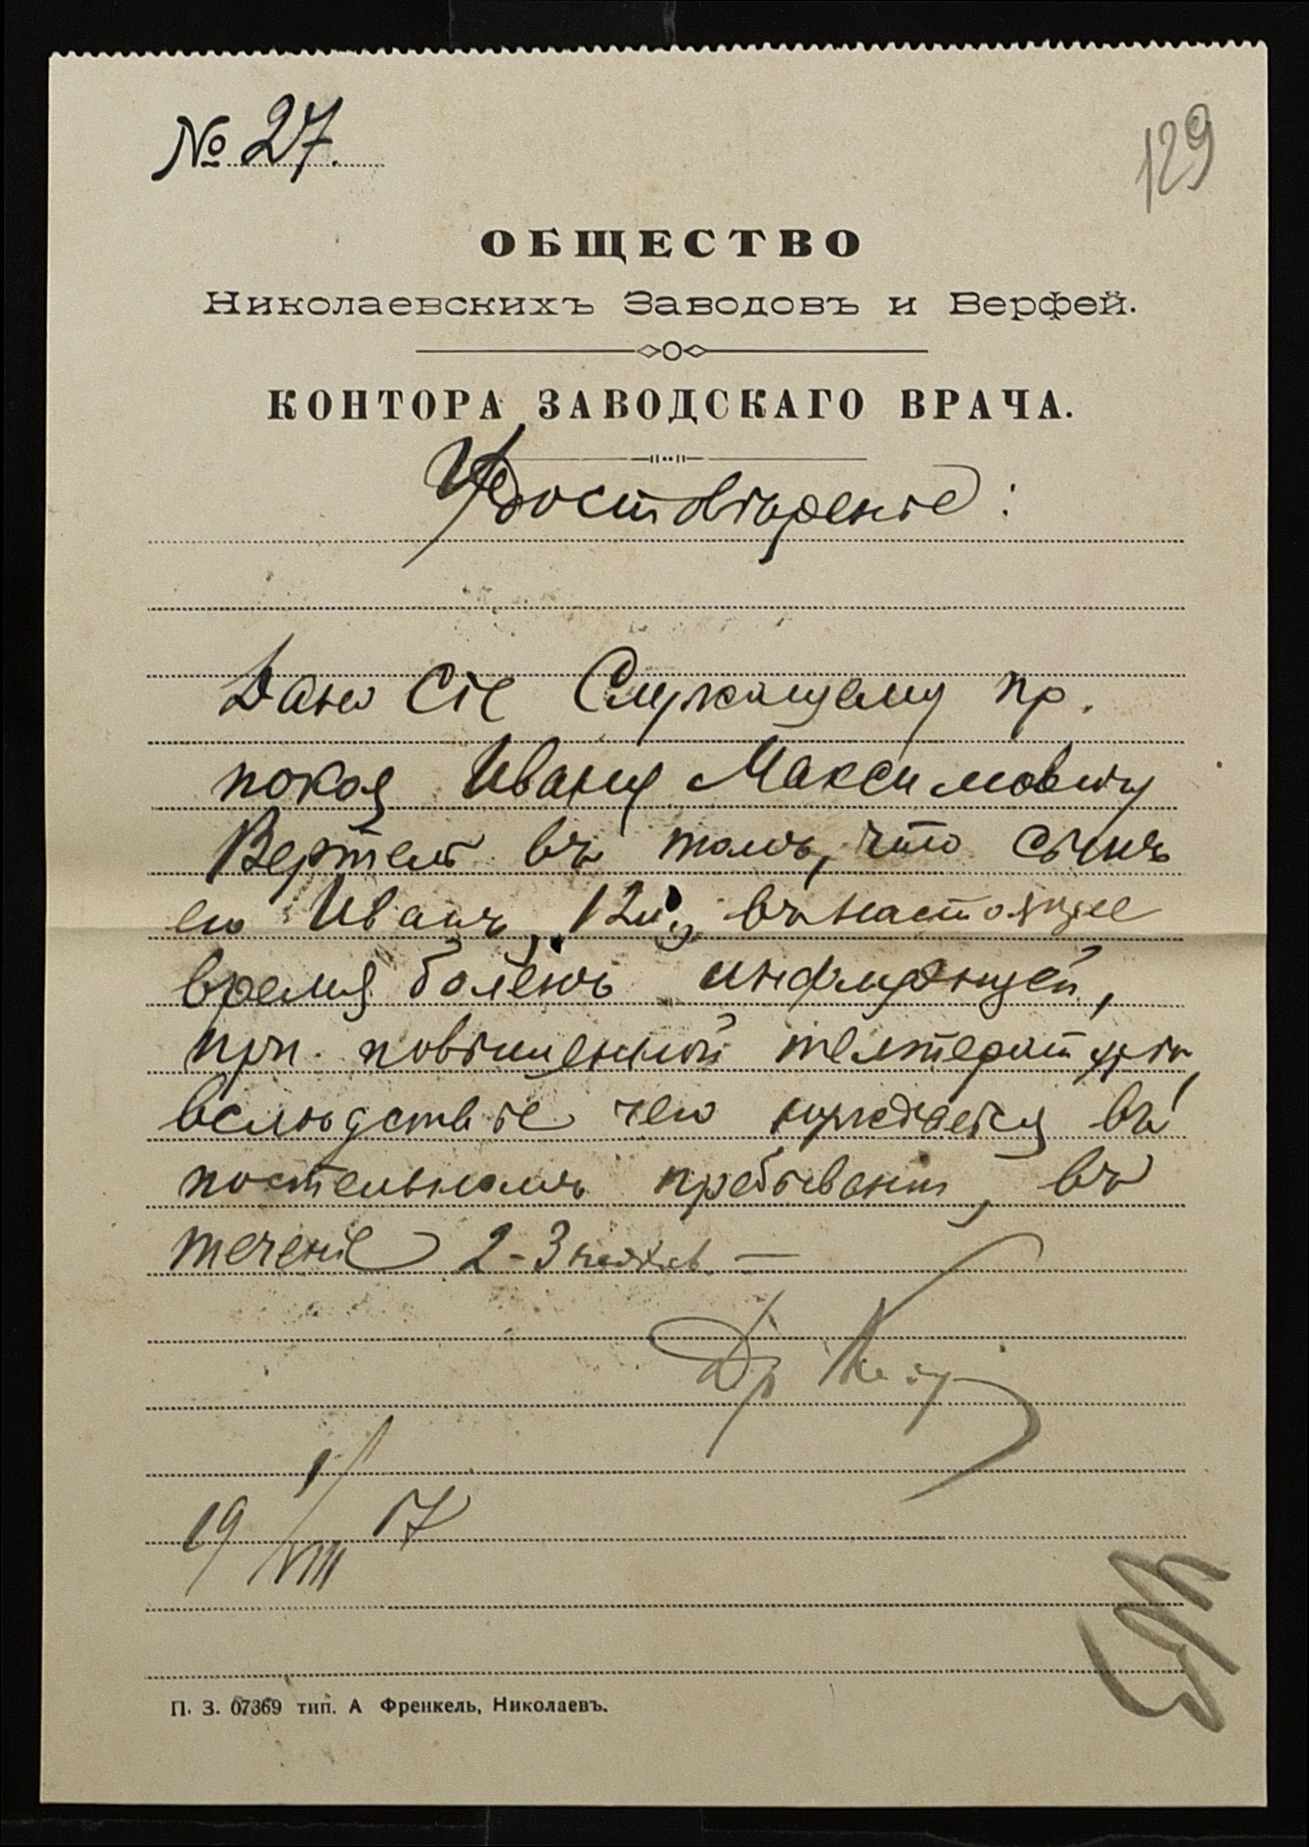 № 27.
129
ОБЩЕСТВО
Николаевскихъ Заводовъ и Верфей.
КОНТОРА ЗАВОДСКАГО ВРАЧА.
Удостовѣреніе:
Дано Сіе Служащему пр.
покоя Ивану Максимовичу
Вертель въ томъ, что сынъ
его Иванъ, 12 въ настоящее
время боленъ инфлуэнцей,
при повышенной температурѣ,
вслѣдствіе чего нуждается въ
постельномъ пребываніи, въ
теченіе 2-3
Др
19 1/VIII 17
П. З. 07369 тип. А Френкель, Николаевъ.